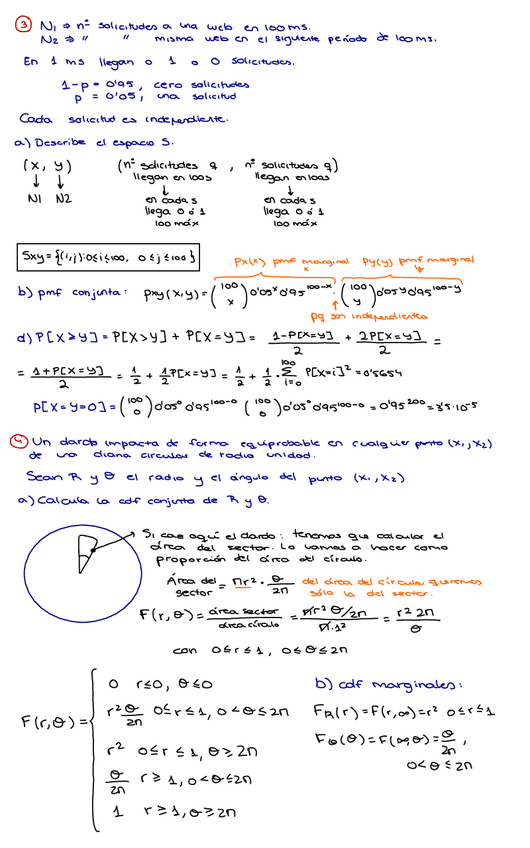 ③ N₁ ⇒ nº solicitudes a una web en 100 ms.
N₂ ⇒ " " misma web en el siguiente periodo de 100 ms.
En 1 ms llegan 0 1 o 0 solicitudes.
1-p = 0'95, cero solicitudes
p = 0'05, una solicitud
Cada solicitud es independiente.
a) Describe el espacio S.
(x, y) (nº solicitudes q , nº solicitudes q)
llegan en 100s llegan en 100s
↓ ↓ ↓ ↓
N1 N2 en cada s en cada s
llega 0 ó 1 llega 0 ó 1
100 máx 100 máx
Sxy = {(i,j): 0≤i≤100, 0≤j≤100}
px(x) pmf marginal x py(y) pmf marginal y
b) pmf conjunta: pxy(x,y) = (100 x) 0'05^x 0'95^100-x · (100 y) 0'05^y 0'95^100-y
↑
pq son independientes
d) P[X≥Y] = P[X>Y] + P[X=Y] = 1-P[X=Y]/2 + 2P[X=Y]/2 =
= 1+P[X=Y]/2 = 1/2 + 1/2 P[X=Y] = 1/2 + 1/2 · Σ 100 i=0 P[X=i]² = 0'5654
P[X=Y=0] = (100 0) 0'05⁰ 0'95^100-0 (100 0) 0'05⁰ 0'95^100-0 = 0'95^200 = 3'5·10^-5
④ Un dardo impacta de forma equiprobable en cualquier punto (x₁,x₂)
de una diana circular de radio unidad.
Sean R y θ el radio y el ángulo del punto (x₁,x₂)
a) Calcula la cdf conjunta de R y θ.
Si cae aquí el dardo: tenemos que calcular el
área del sector. Lo vamos a hacer como
proporción del área del círculo.
Área del sector = πr² · θ/2π del área del círculo, queremos
sólo la del sector.
F(r,θ) = área sector/área círculo = πr² θ/2π / π·1² = r² 2π/θ
con 0≤r≤1, 0≤θ≤2π
F(r,θ) =
0 r≤0, θ≤0
r² θ/2π 0≤r≤1, 0<θ≤2π
r² 0≤r≤1, θ≥2π
θ/2π r≥1, 0<θ≤2π
1 r≥1, θ≥2π
b) cdf marginales:
F_R(r) = F(r,∞) = r² 0≤r≤1
F_θ(θ) = F(∞,θ) = θ/2π,
0<θ≤2π